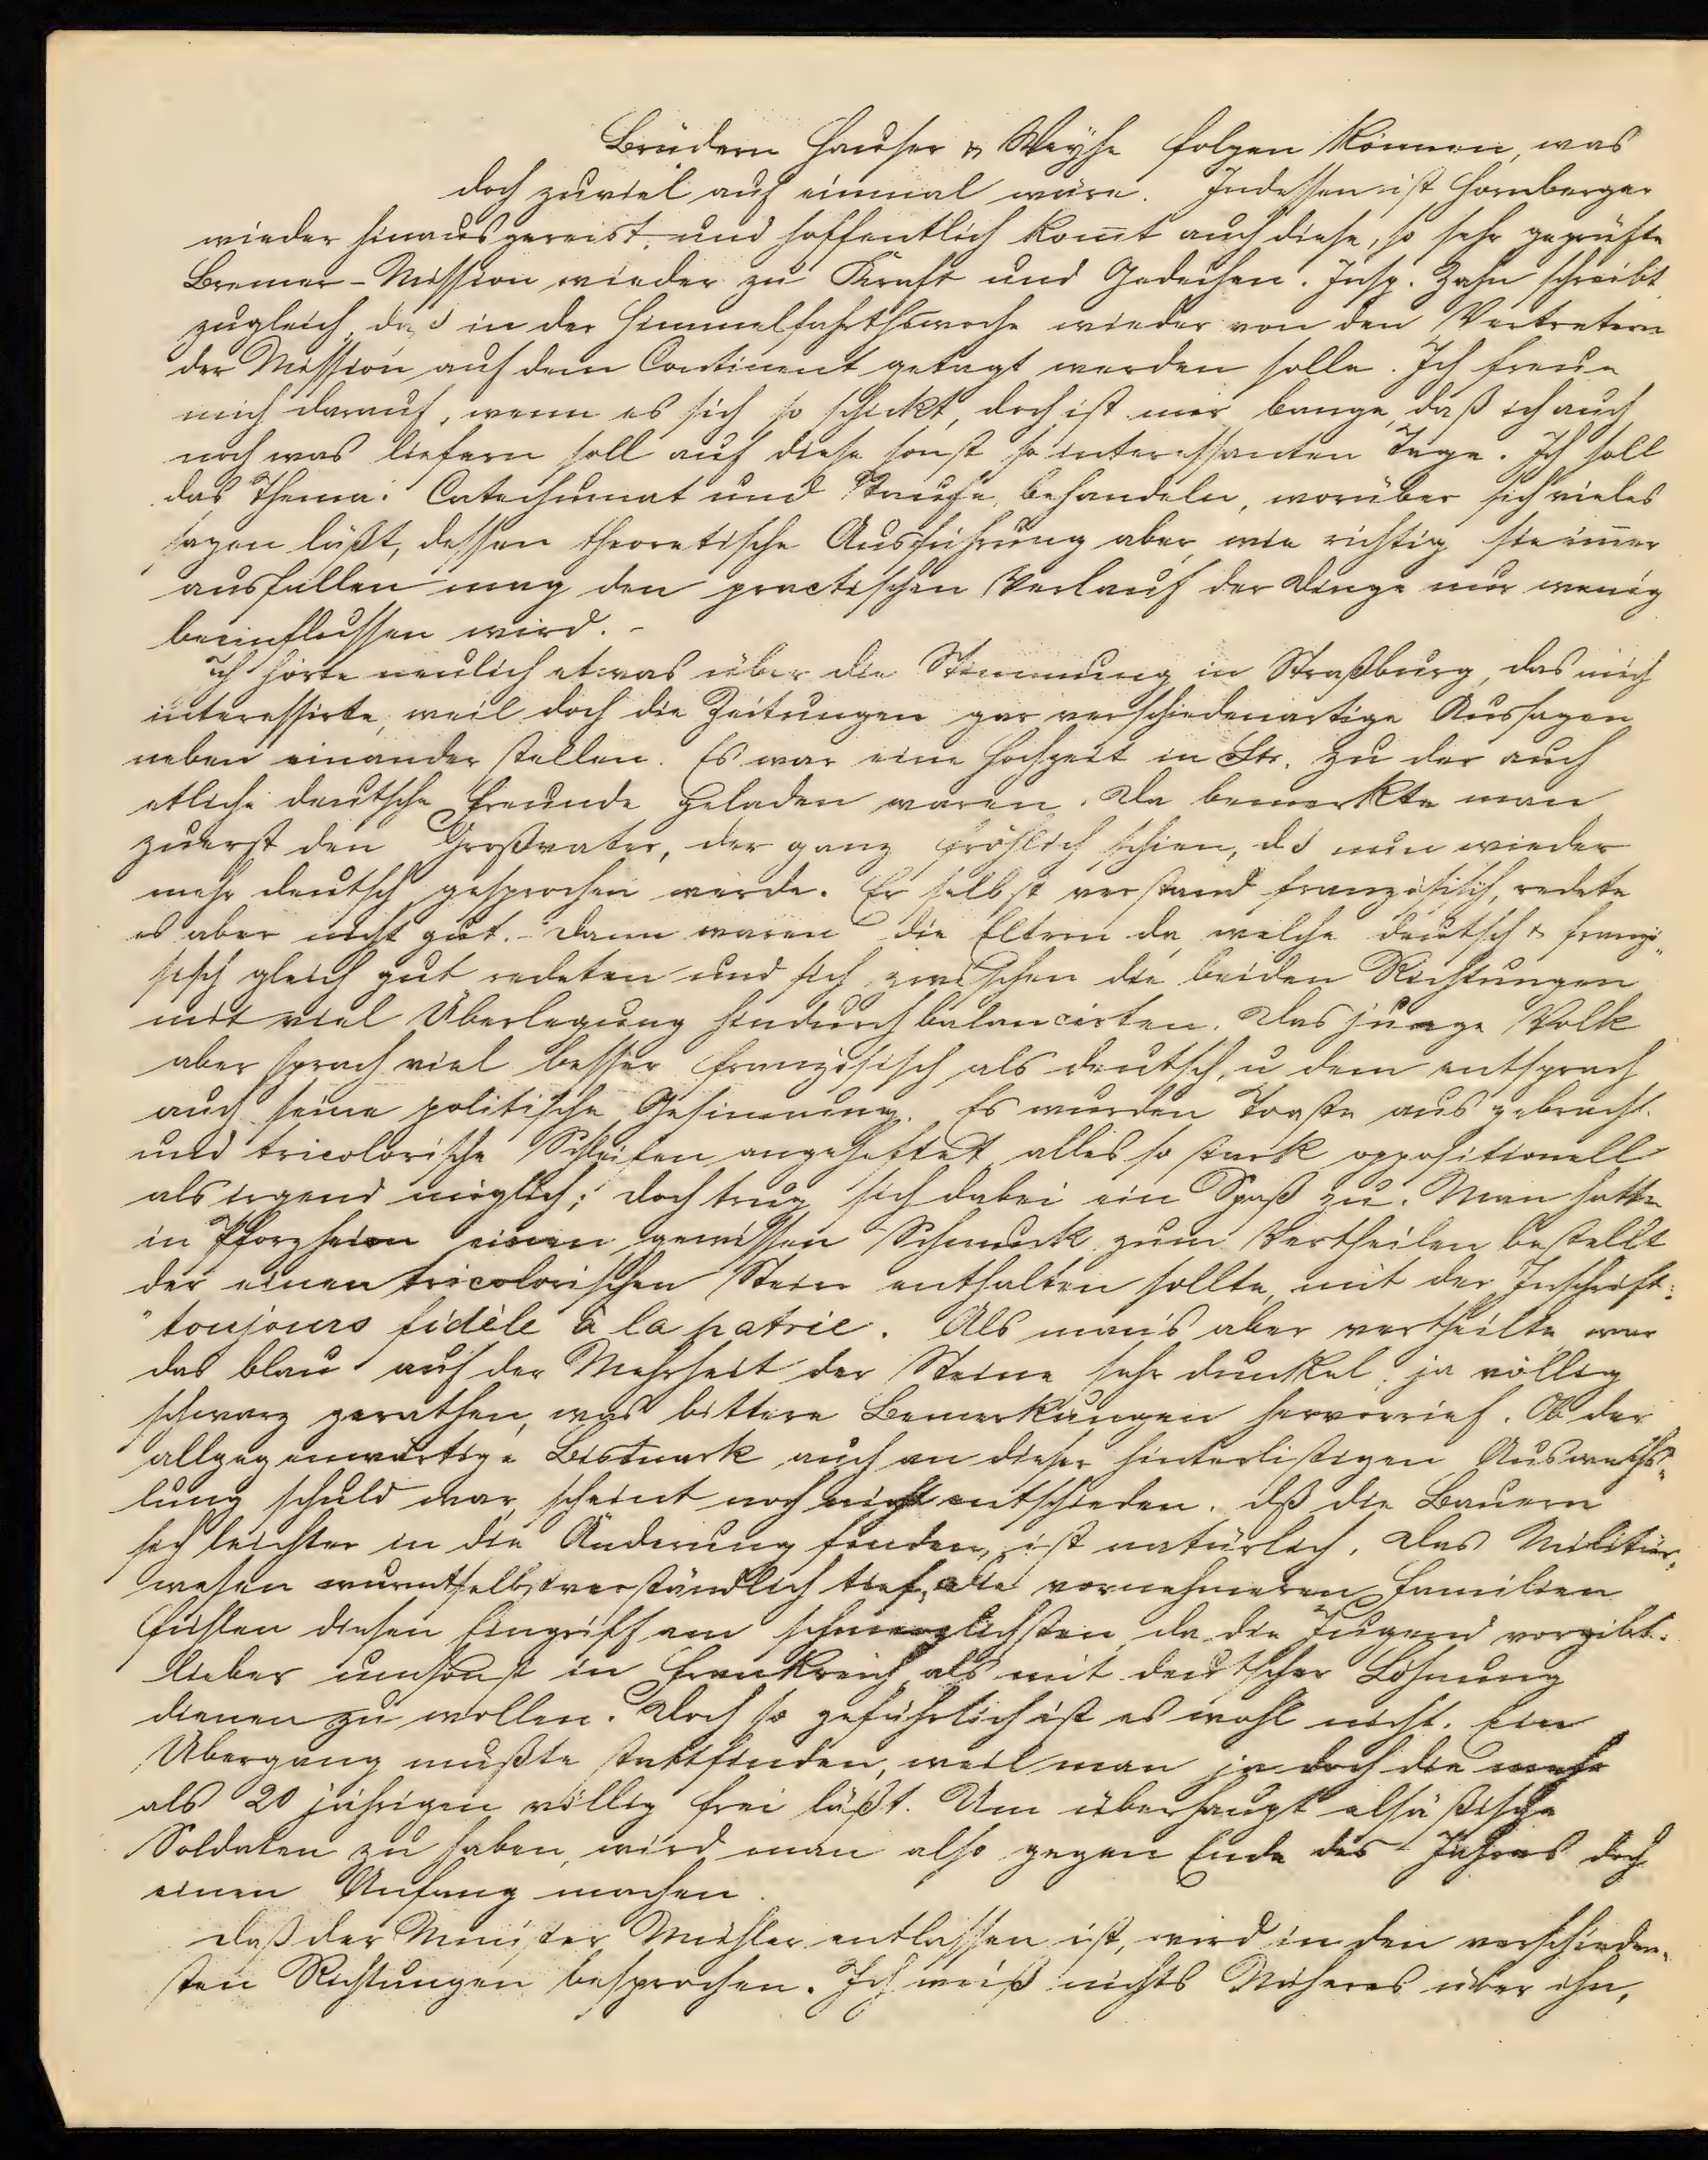 Brüdern Hauser & Weyhe folgen können, was
doch zuviel auf einmal wäre. Indessen ist Hornberger
wieder hinausgereist, und hoffentlich kom̄t auch diese, so sehr geprüfte
Bremer-Mission wieder zu Kraft und Gedeihen. Insp. Zahn schreibt
zugleich, daß in der Himmelfahrthswoche wieder von den Vertretern
der Mission auf dem Continent getagt werden solle. Ich freue
mich darauf, wenn es sich so schickt, doch ist mir bange, daß ich auch
noch was liefern soll auf diese sonst so interessanten Tage. Ich soll
das Thema: Catechumat und Taufe behandeln, worüber sich vieles
sagen läßt, dessen theoretische Ausführung aber, wie richtig sie im̄er
ausfallen mag den practischen Verlauf der Dinge nur wenig
beeinflussen wird. -
Ich hörte neulich etwas über die Stimmung in Straßburg, das mich
interessirte, weil doch die Zeitungen gar verschiedenartige Aussagen
neben einander stellen. Es war eine Hochzeit in Str. zu der auch
etliche deutsche Freunde geladen waren. Da bemerkte man
zuerst den Großvater, der ganz fröhlich schien, dß nun wieder
mehr deutsch gesprochen werde. Er selbst verstand französisch, redete
es aber nicht gut. - Dann waren die Eltern da, welche deutsch & franzö-
sisch gleich gut redeten und sich zwischen die beiden Richtungen
mit viel Überlegung hindurch balancirten. Das junge Volk
aber sprach viel besser französisch als deutsch, u dem entsprach
auch seine politische Gesinnung. Es wurden Toaste ausgebracht
und tricolorische Schleifen angeheftet, alles so stark oppositionell
als irgend möglich; doch trug sich dabei ein Spaß zu. Man hatte
in Pforzheim einen gewissen Schmuck zum Vertheilen bestellt
der einen tricolorischen Stein enthalten sollte, mit der Inschrift:
"toujours fidèle à la patrie. Als man's aber vertheilte war
das blau auf der Mehrheit der Steine sehr dunkel, ja völlig
schwarz gerathen, was bittere Bemerkungen hervorrief. Ob der
allgegenwärtige Bismark auch an dieser hinterlistigen Auswechs-
lung schuld war, scheint noch nicht entschieden. dß die Bauern
sich leichter in die Änderung finden, ist natürlich. Das Militär-
wesen wurmt selbstverständlich tief, die vornehmeren Familien
fühlen diesen Eingriff am schmerzlichsten, da die Jugend vorgibt
lieber umsonst in Frankreich als mit deutscher Löhnung
dienen zu wollen. Doch so gefährlich ist es wohl nicht. Ein
Übergang mußte stattfinden, weil man ja doch die mehr
als 20 jährigen völlig frei läßt. Um überhaupt elsäßische
Soldaten zu haben, wird man also gegen Ende des Jahres doch
einen Anfang machen.
Daß der Minister Mühler entlassen ist, wird in den verschieden-
sten Richtungen besprochen. Ich weiß nichts Näheres über ihn,